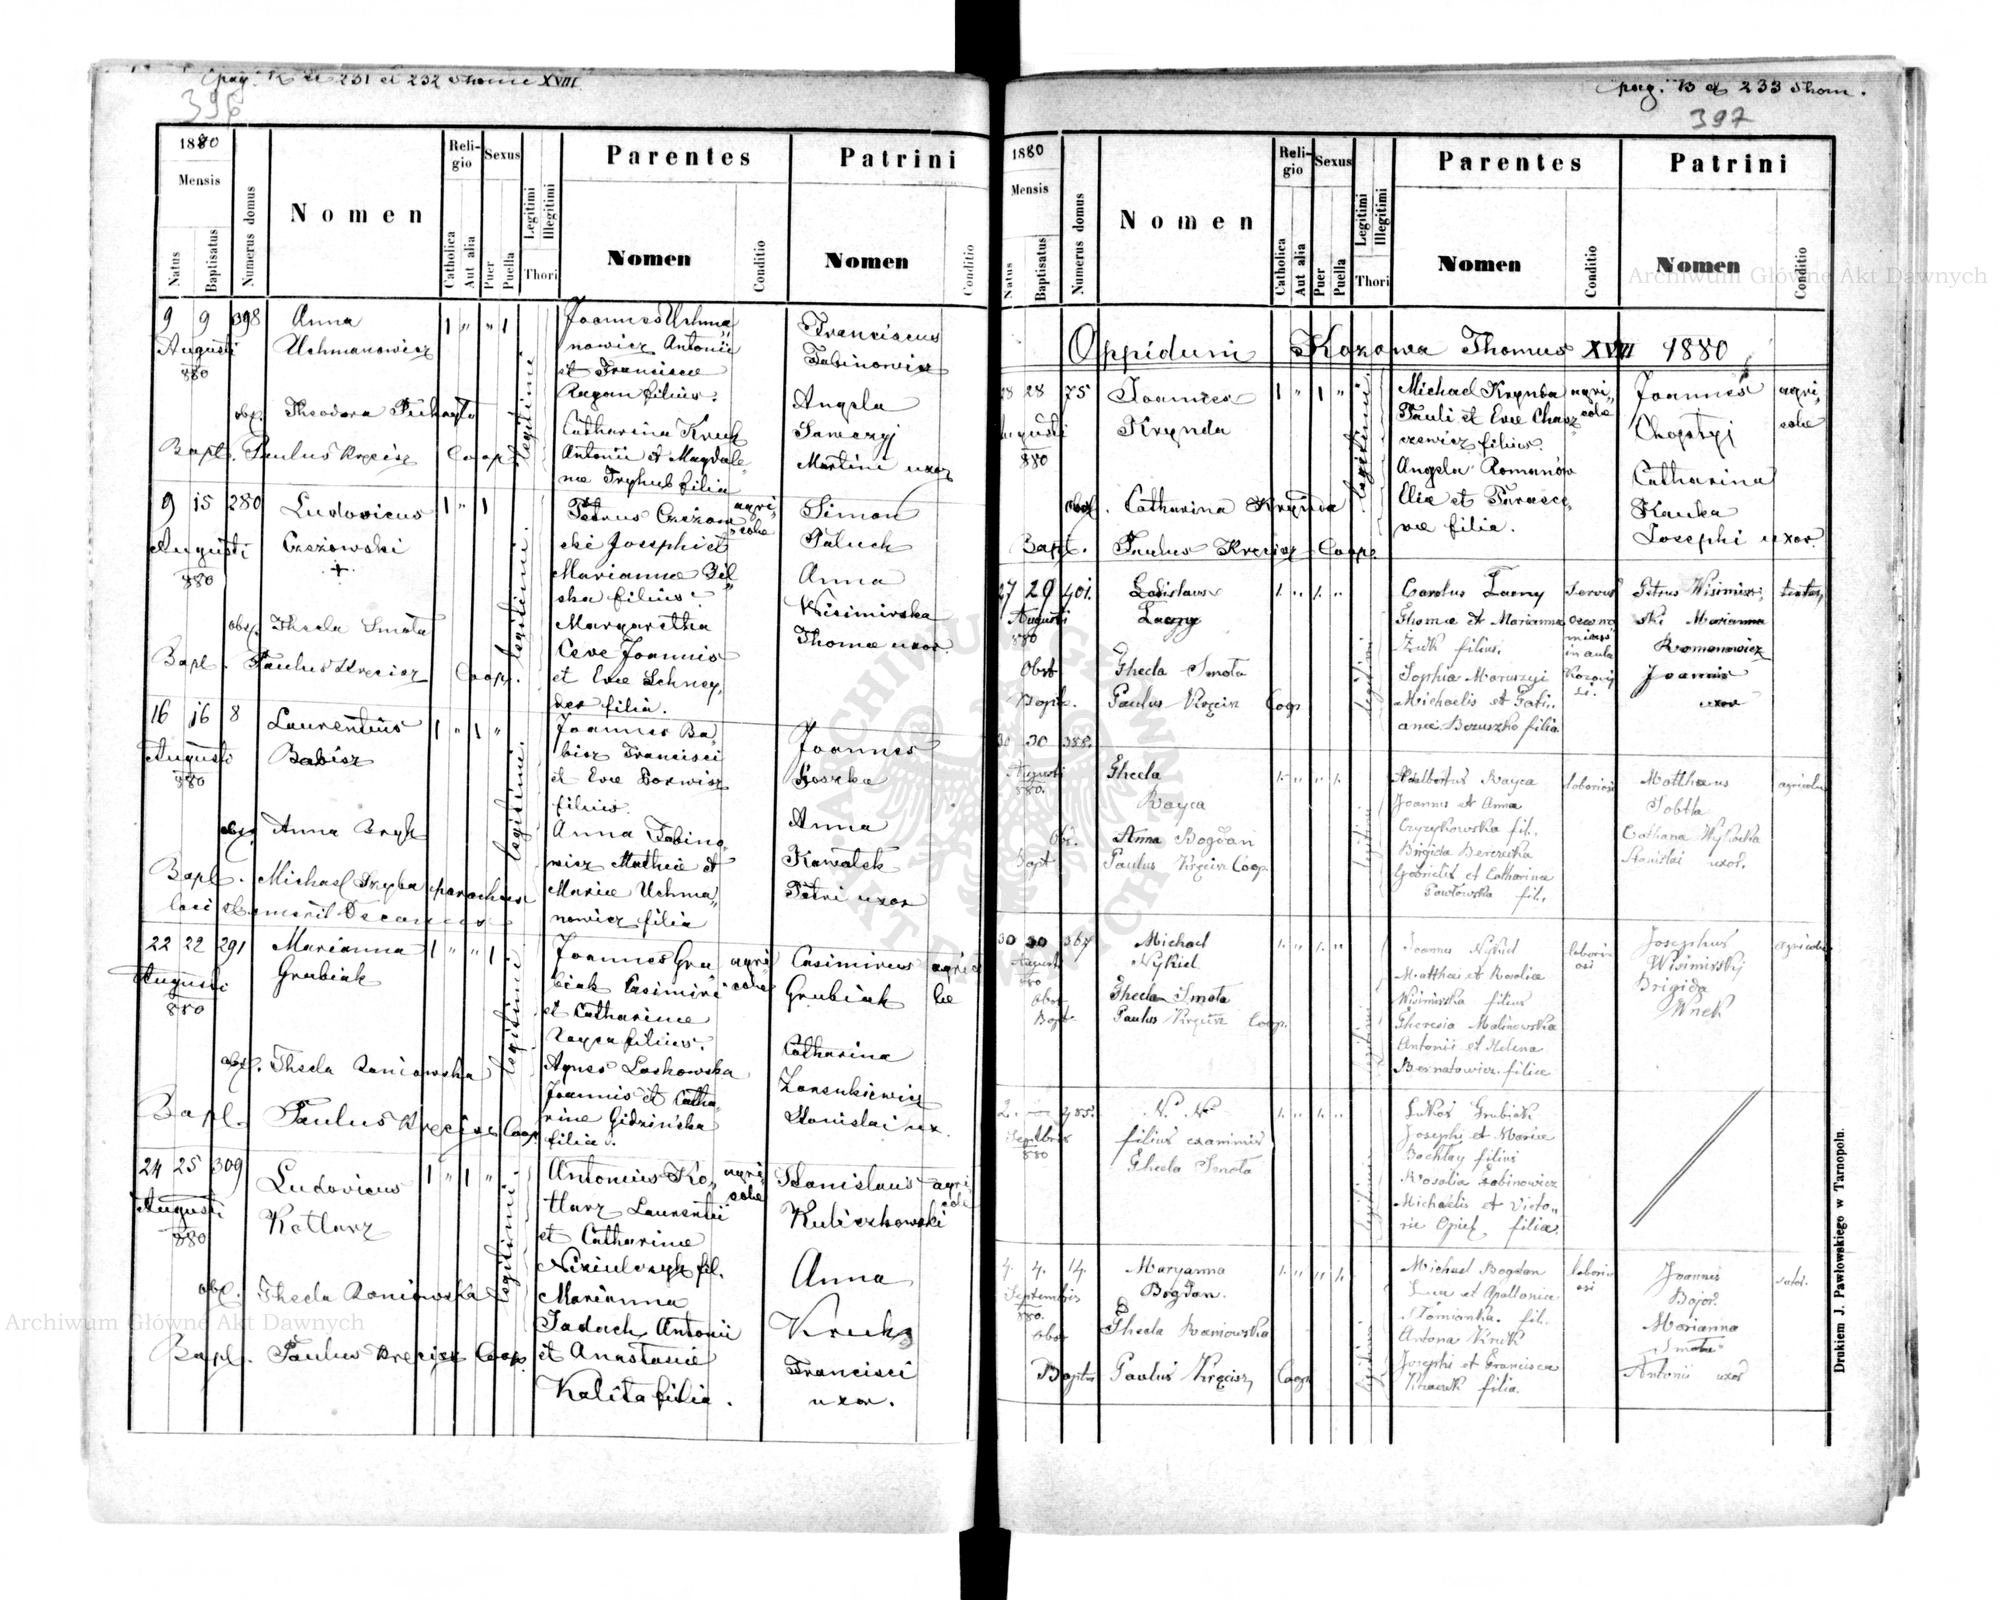 pag. 12 et 231 et 232 Thomus XVIII
396
1880
Mensis
Natus
Baptisatus
Numerus domus
Nomen
Religio
Catholica
Aut alia
Sexus
Puer
Puella
Legitimi
Illegitimi
Thori
Parentes
Nomen
Conditio
Patrini
Nomen
Conditio
9 9 398 Anna
Uchmanowicz
Augusti
880
obst. Theodora
Bapt. Paulus Kręcisz Coop.
legitimi
Joannes Uchma
nowicz Antonii
et Francisce
Ragan filius.
Catharina Kruk
Antonii et Magdale
ne Tryhub filia
Franciscus
Tabinowicz
Angela
Sawczyj
Martini uxor
9 15 280 Ludovicus
Czeżowski
+
Augusti
880
obst. Thecla Smota
Bapt. Paulus Kręcisz Coop.
legitimi.
Petrus Czeżow
ski Josephi et
Marianne Bil
ska filius.
Margaretha
Ceve Joannis
et Eve Schney
der filia.
agri
cole
Simon
Paluch
Anna
Wisimirska
Thome uxor.
16 16 8 Laurentius
Babisz
Augusti
880
obst. Anna Bryk
Bapt. Michael Dzyba parochus
loci et emerit Decanus
legitimi.
Joannes Ba
bisz Francisci
et Eve Dorwisz
filius.
Anna Tabino
wicz Mathei et
Marie Uchma
nowicz filia
Joannes
Koszka
Anna
Kawalek
Petri uxor
22 22 291 Marianna
Grubiak
Augusti
880
obst. Thecla Raniowska
Bapt. Paulus Kręcisz Coop.
legitimi
Joannes Gru
biak Casimiri
et Catharine
Rayca filius.
Agnes Laskowska
Joannis et Catha
rine Gidzińska
filia.
agri
cole
Casimirus
Grubiak
agrico
le
Catharina
Stanislai ux.
24 25 309 Ludovicus
Kotlarz
Augusti
880
obst. Thecla Raniowska
Bapt. Paulus Kręcisz Coop.
legitimi.
Antonius Ko
tlarz Laurentii
et Catharine
fil.
Marianna
Sadach Antonii
et Anastasie
Kalita filia.
agri
cole
Stanislaus
Kuliczkowski
agri
cole
Anna
Kruk
Francisci
uxor.
pag. 13 et 233 Thom.
397
1880
Mensis
Natus
Baptisatus
Numerus domus
Nomen
Religio
Catholica
Aut alia
Sexus
Puer
Puella
Legitimi
Illegitimi
Thori
Parentes
Nomen
Conditio
Patrini
Nomen
Conditio
Oppidum Kozowa Thomus XVIII 1880
28 28 75 Joannes
Krynda
Augusti
880
obst. Catharina Krynda
Bapt. Paulus Kręcisz Coop.
legitimi
Michael Krynda
Pauli et Eve Chasz
czewicz filius.
Angela Romanów
Elie et Parasce
ve filia.
agri
cole
Joannes
Choptyj
Catharina
Kauka
Josephi uxor.
agri
cole
27 29 401. Ladislaus
Łacny
Augusti
880
Obst Thecla Smota
Bapt. Paulus Kręcisz Coop
Carolus Łacny
Thome et Marianna
Żuk filius.
Sophia Maruszyj
Michaelis et Tati
ane Bezuszko filia
servus
oecono
micus
in aula
Kozovi
Petrus Wisimir
ski Marianna
Romanowicz
Joannis
uxor
30 30 388. Thecla
Rayca
Augusti
880.
Ob. Anna Bogdan
Bapt Paulus Kręcisz Coop.
Adalbertus Rayca
Joannis et Anna
Czyżykowska fil.
Brigida Berezecka
Gabrielis et Catharine
Pawłowska fil.
laboriosi
Mathaeus
Sobtta
Stanislai uxor.
agricola
30 30 367 Michael
Nykiel
Augusti
880
Obst Thecla Smota
Bapt. Paulus Kręcisz Coop.
Joannes Nykiel
Matthaei et Rosalie
Wisimirska filius
Theresia Malinowska
Antonii et Helena
Bernatowicz filia
labori
osi
Josephus
Wisimirskij
Brigida
Wnek
agricola
2. 485. N. N.
filius exanimis
Thecla Smota
Septbris
880
Lukas Grubiak
Josephi et Marie
Bachtay filius
Rosalia Tabinowicz
Michaelis et Victo
rie Opiet filia.
4. 4. 14. Maryanna
Bogdan.
Septembris
880.
Obst Thecla Raniowska
Baptus Paulus Kręcisz Coop
Michael Bogdan
Luce et Apollonia
Słomianka. fil.
Antona Kruk
Josephi et Francisca
filia.
labori
osi
Joannes
Bojar.
Marianna
Smota
Antonii uxor
Drukiem J. Pawłowskiego w Tarnopolu.
Archiwum Główne Akt Dawnych
Archiwum Główne Akt Dawnych
ARCHIWUM GŁÓWNE
AKT DAWNYCH